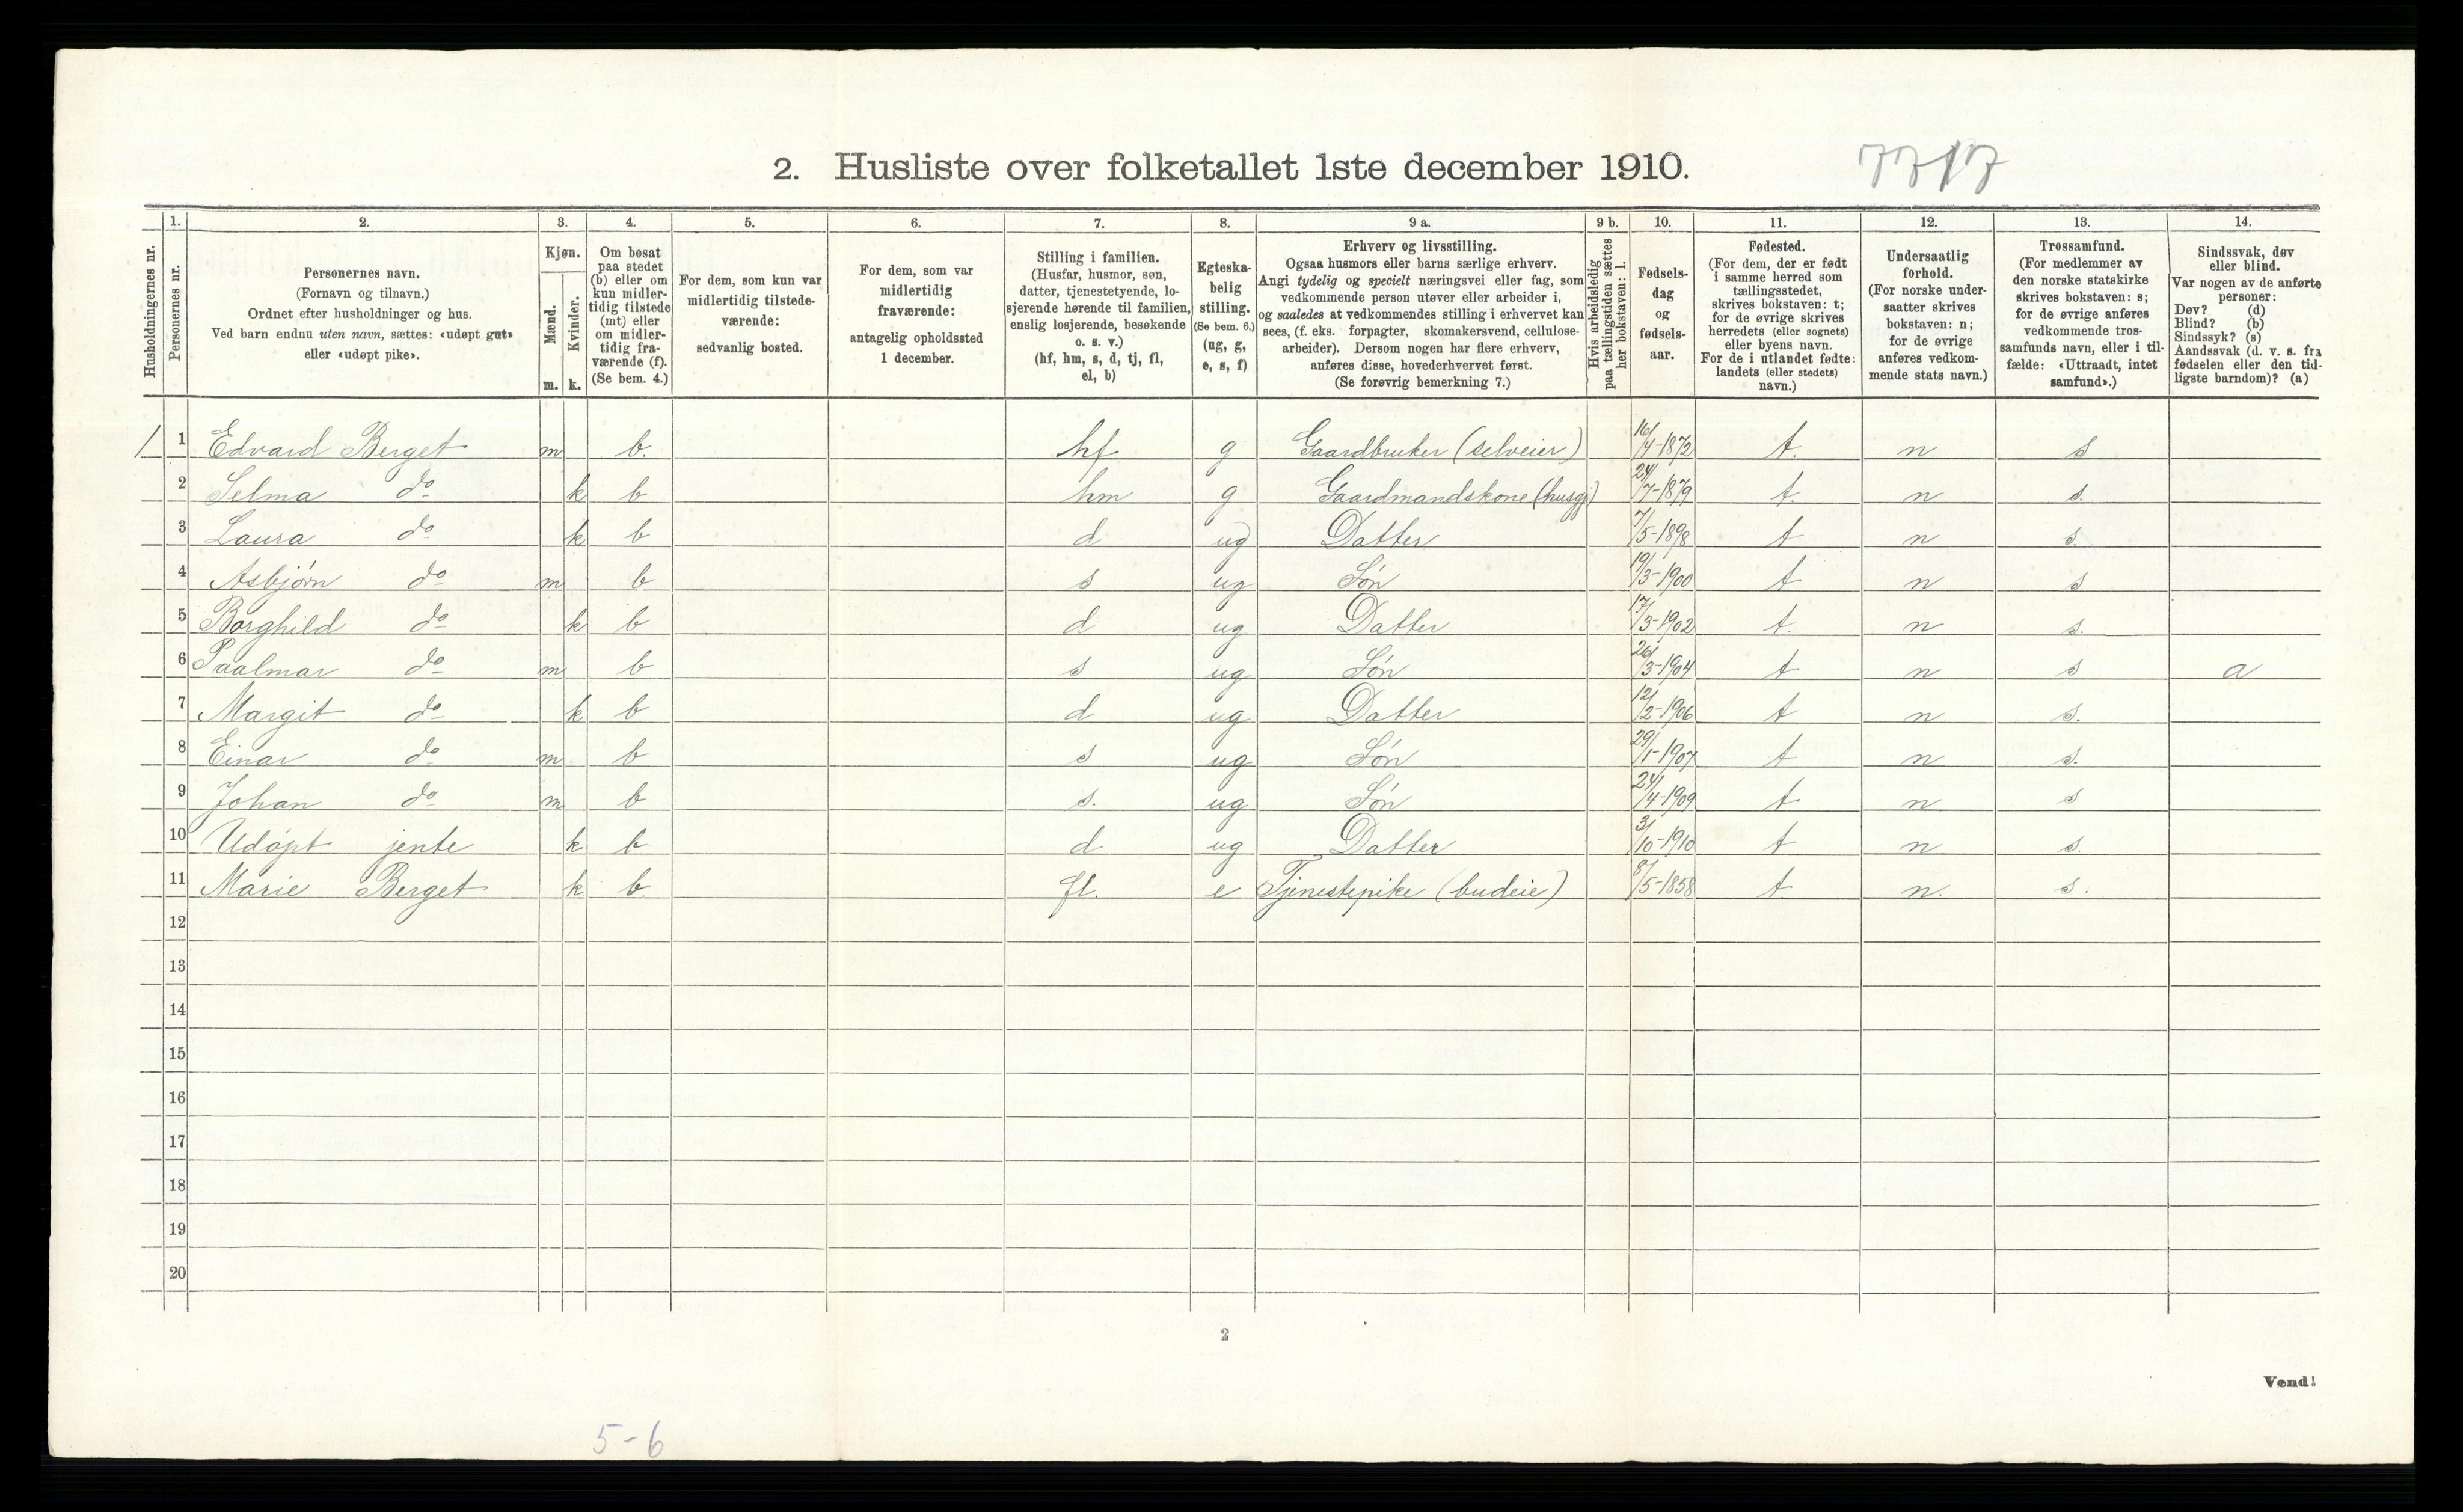 2. Husliste over folketallet 1ste december 1910.
1. 2. 3. 4. 5. 6. 7. 8. 9 a. 9 b. 10. 11. 12. 13. 14.
Husholdningernes nr.
Personernes nr.
Personernes navn.
(Fornavn og tilnavn.)
Ordnet efter husholdninger og hus.
Ved barn endnu uten navn, sættes: «udøpt gut»
eller «udøpt pike».
Kjøn.
Mænd.
Kvinder.
m. k.
Om bosat
paa stedet
(b) eller om
kun midler-
tidig tilstede
(mt) eller
om midler-
tidig fra-
værende (f).
(Se bem. 4.)
For dem, som kun var
midlertidig tilstede-
værende:
sedvanlig bosted.
For dem, som var
midlertidig
fraværende:
antagelig opholdssted
1 december.
Stilling i familien.
(Husfar, husmor, søn,
datter, tjenestetyende, lo-
sjerende hørende til familien,
enslig losjerende, besøkende
o. s. v.)
(hf, hm, s, d, tj, fl,
el, b)
Egteska-
belig
stilling.
(Se bem. 6.)
(ug, g,
e, s, f)
Erhverv og livsstilling.
Ogsaa husmors eller barns særlige erhverv.
Angi tydelig og specielt næringsvei eller fag, som
vedkommende person utøver eller arbeider i,
og saaledes at vedkommendes stilling i erhvervet kan
sees, (f. eks. forpagter, skomakersvend, cellulose-
arbeider). Dersom nogen har flere erhverv,
anføres disse, hovederhvervet først.
(Se forøvrig bemerkning 7.)
Hvis arbeidsledig
paa tællingstiden sættes
her bokstaven: l.
Fødsels-
dag
og
fødsels-
aar.
Fødested.
(For dem, der er født
i samme herred som
tællingsstedet,
skrives bokstaven: t;
for de øvrige skrives
herredets (eller sognets)
eller byens navn.
For de i utlandet fødte:
landets (eller stedets)
navn.)
Undersaatlig
forhold.
(For norske under-
saatter skrives
bokstaven: n;
for de øvrige
anføres vedkom-
mende stats navn.)
Trossamfund.
(For medlemmer av
den norske statskirke
skrives bokstaven: s;
for de øvrige anføres
vedkommende tros-
samfunds navn, eller i til-
fælde: «Uttraadt, intet
samfund».)
Sindssvak, døv
eller blind.
Var nogen av de anførte
personer:
Døv? (d)
Blind? (b)
Sindssyk? (s)
Aandssvak (d. v. s. fra
fødselen eller den tid-
ligste barndom)? (a)
1 1 Edvard Berget m b. hf g Gaardbruker (selveier) 16/4-1872 t. n s
2 Selma do k b hm g Gaardmandskone (husgj) 24/7-1879 t. n s.
3 Laura do k b d ug Datter 7/5-1898 t n s.
4 Asbjørn do m b s ug Søn 19/3-1900 t n s
5 Borghild do k b d ug Datter 17/3-1902 t. n s.
6 Paalmar do m b s ug Søn 26/3-1904 t n s a
7 Margit do k b d ug Datter 12/2-1906 t n s.
8 Einar do m b s ug Søn 29/1-1907 t n s.
9 Johan do m b s. ug Søn 24/4-1909 t n s
10 Udøpt jente k b d. ug Datter 3/10-1910 t n s.
11 Marie Berget k b fl. e Tjenestepike (budeie) 8/5-1858 t. n. s.
12
13
14
15
16
17
18
19
20
2
Vend!
5-6